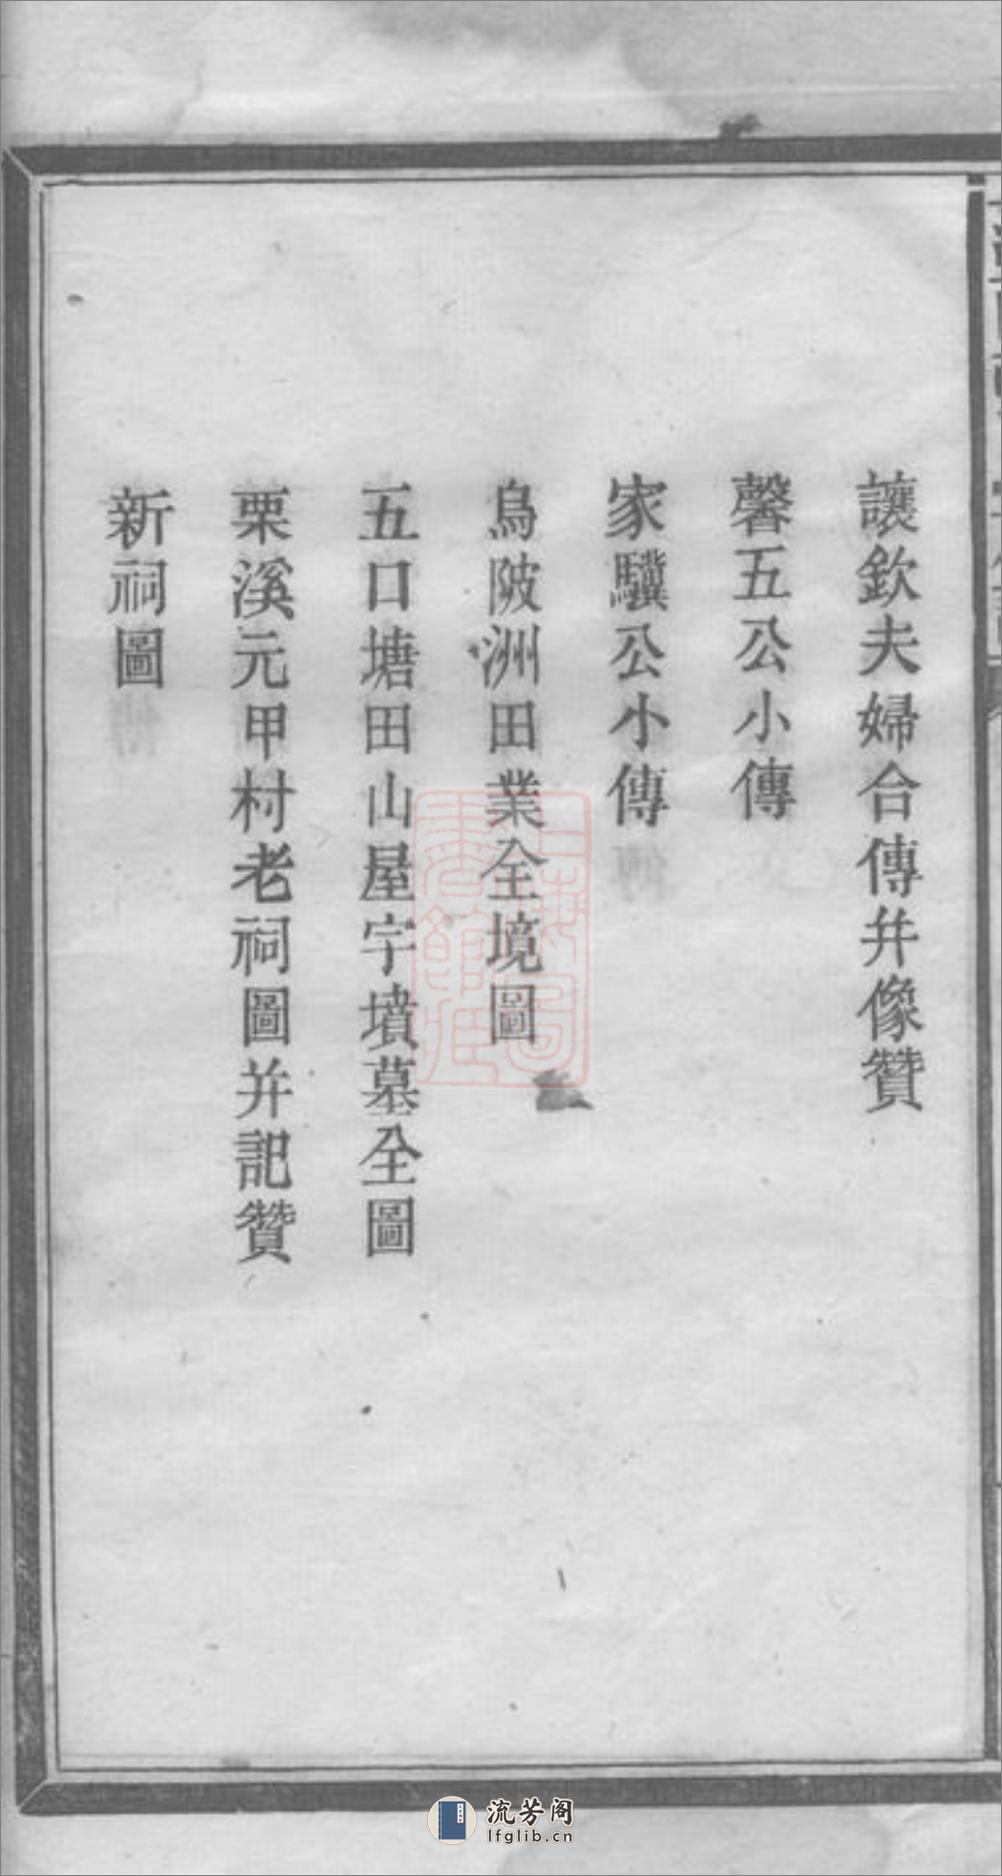 讓欽夫婦合傳幷像贊
馨五公小傳
家驥公小傳
烏陂洲田業全境圖
五口塘田山屋宇墳墓全圖
栗溪元甲村老祠圖并記贊
新祠圖
上海圖書館藏
流芳阁
lfglib.cn